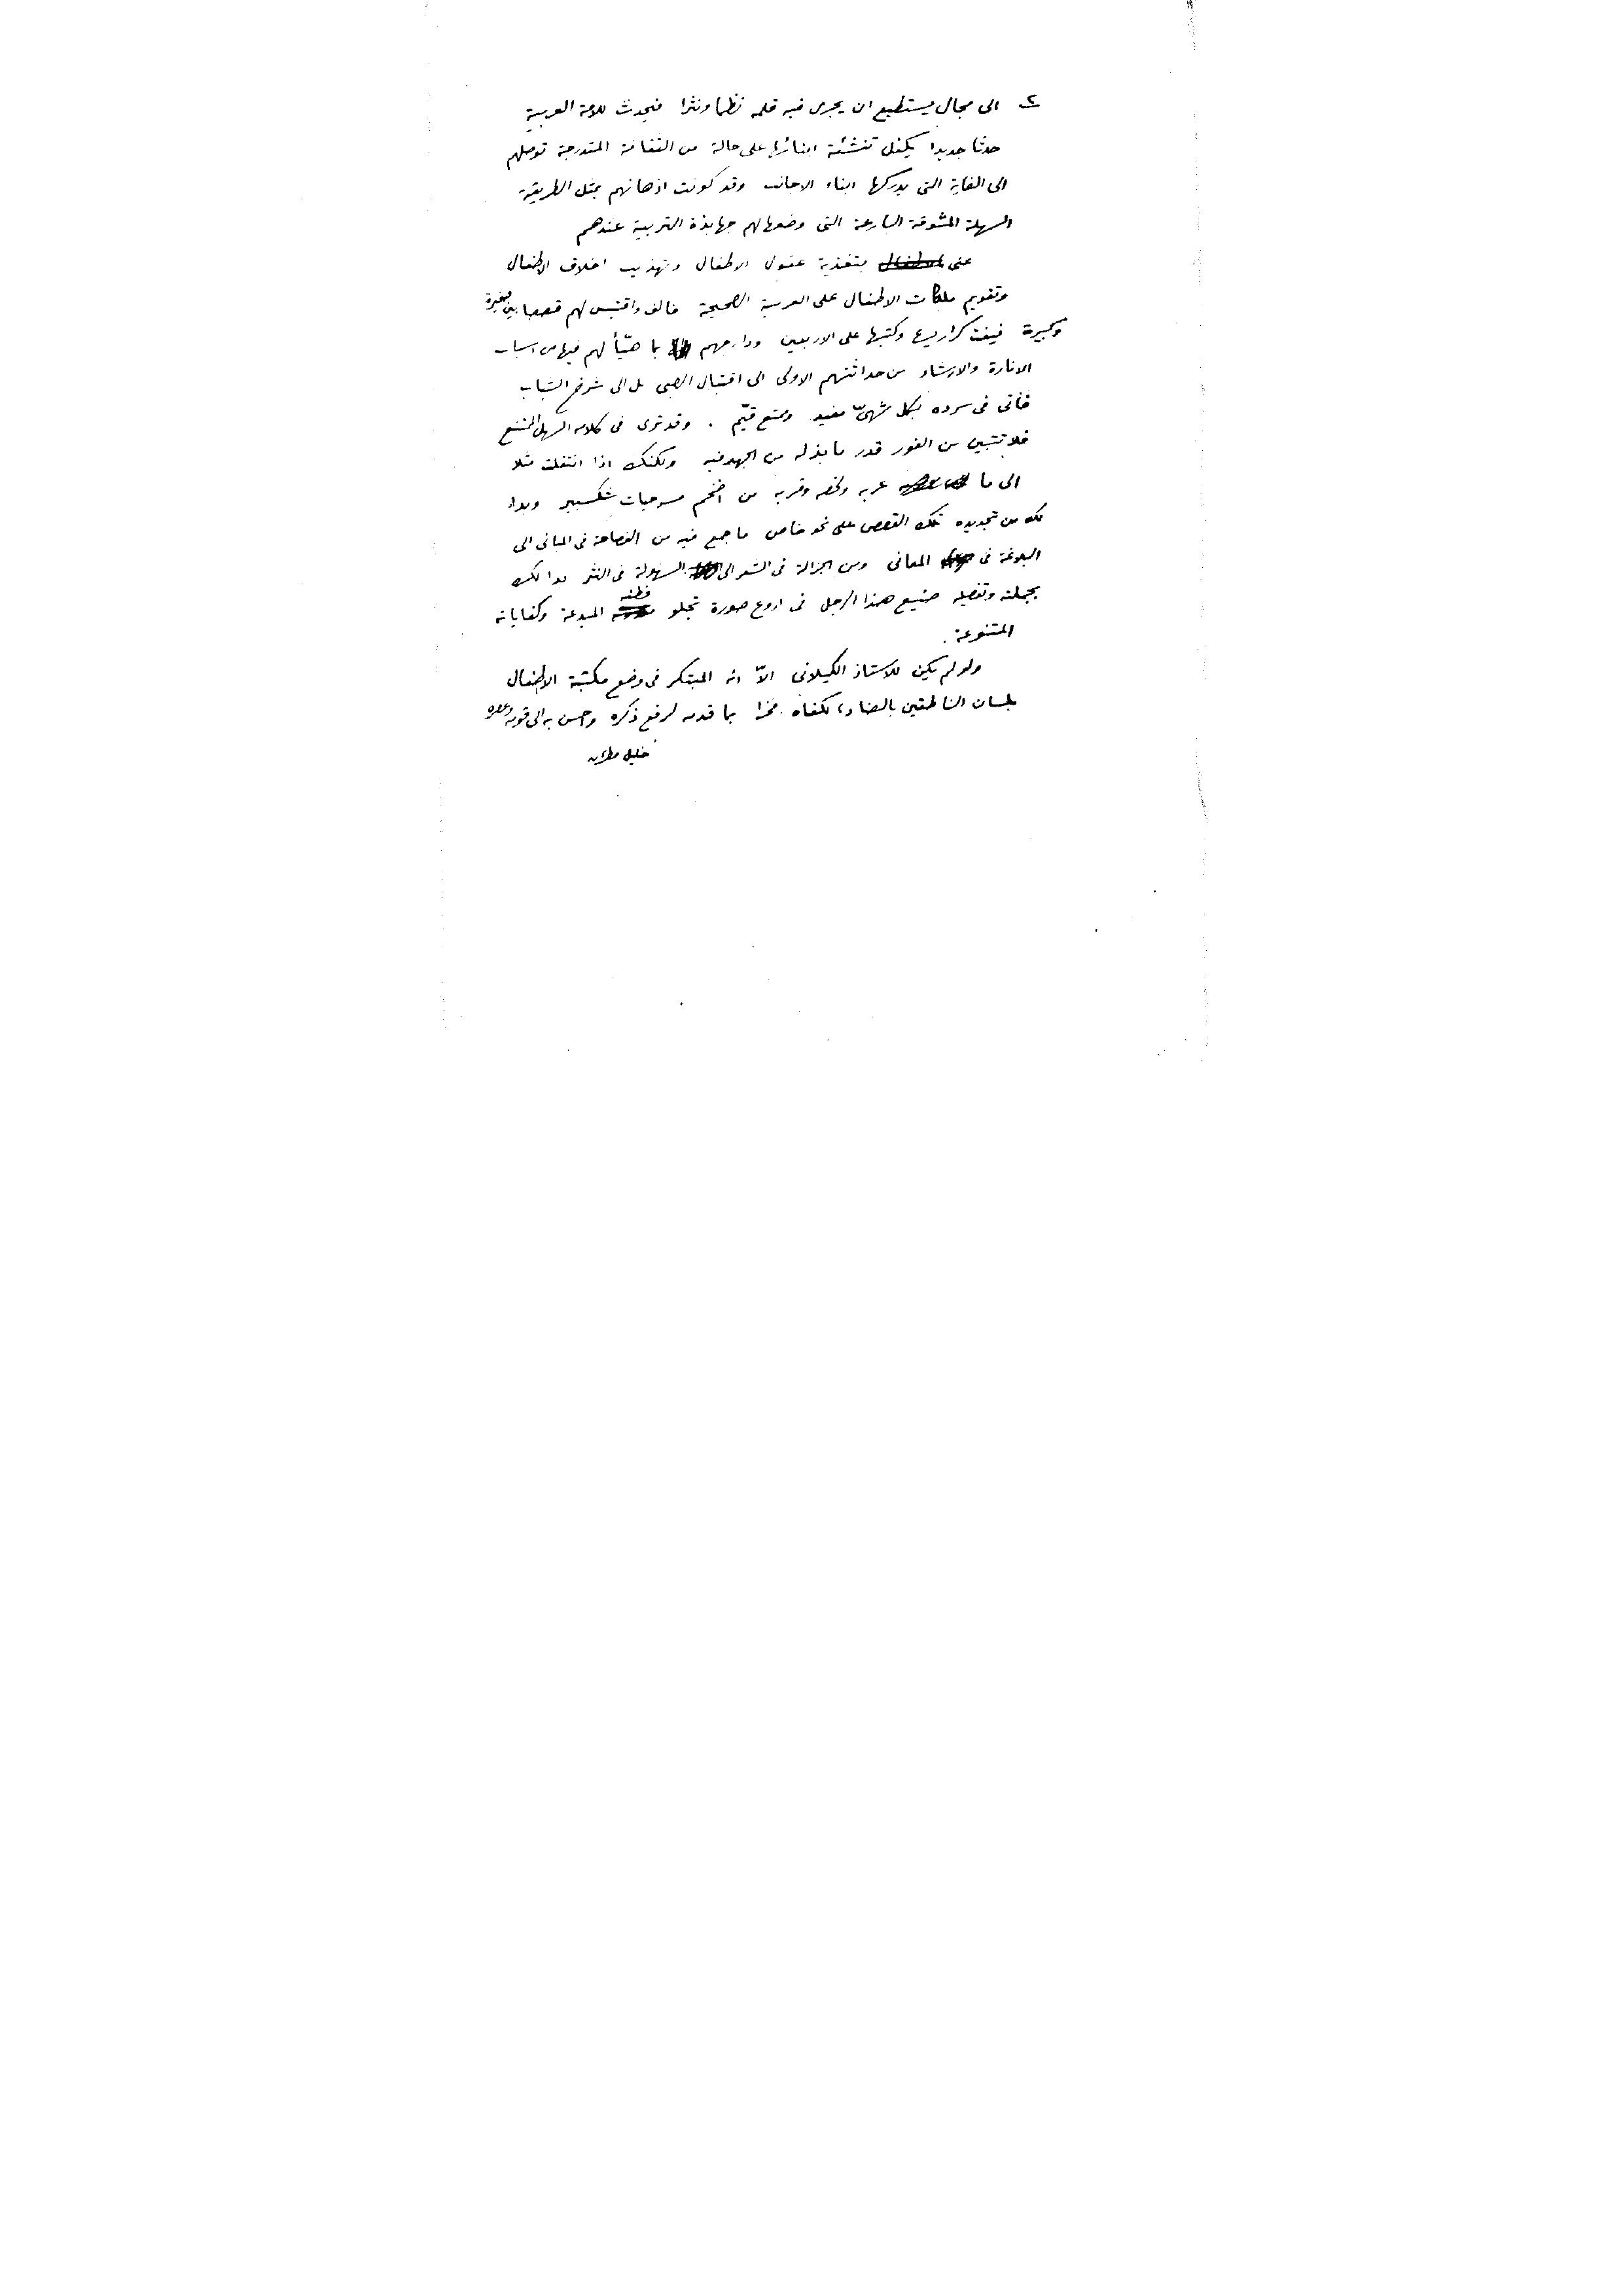 ٢ الى مجال يستطيع ان يجرى فيه قلمه نظما ونثرا فيحدث للامة العربية
حدثا جديدا يكفل تنشئة ابنائها على حالة من الثقافة المتدرجة توصلهم
الى الغاية التى يدركها ابناء الاجانب وقد كونت اذهانهم بمثل الطريقة
السهلة المشوقة البارعة التى وضعها لهم جهابذة التربية عندهم
عنى بتغذية عقول الاطفال وتهذيب اخلاق الاطفال
وتقويم ملكات الاطفال على العربية الصحيحة فالف واقتبس لهم قصصا بين صغيرة
وكبيرة نيفت كراريسها وكتبها على الاربعين ودارجهم بما هيّأ لهم فيها من اسباب
الانارة والارشاد من حداثتهم الاولى الى اقتبال الصبى بل الى شرخ الشباب
فأتى فى سرده بكل شهىّ مفيد وممتع قيّم . وقد ترى فى كلامه السهل الممتنع
فلا تتبين من الفور قدر ما بذله من الجهد فيه ولكنك اذا انتقلت مثلا
الى ما عربه ولخصه وقربه من افخم مسرحيات شكسبير وبدا
لك من تجديده تلك القصص على نحو خاص ما جمع فيه من الفصاحة فى المبانى الى
البلاغة فى المعانى ومن الجزالة فى الشعر الى السهولة فى النثر بدا لك
بجملته وتفصيله صنيع هذا الرجل فى اروع صورة تجلو فطنته المبدعة وكفاياته
المتنوعة .
ولو لم يكن للاستاذ الكيلانى الاّ انه المبتكر فى وضع مكتبة الاطفال
بلسان الناطقين بالضاد، لكفاه فخرا بما قدمه لرفع ذكره واحسن به الى قومه وعصره
خليل مطران